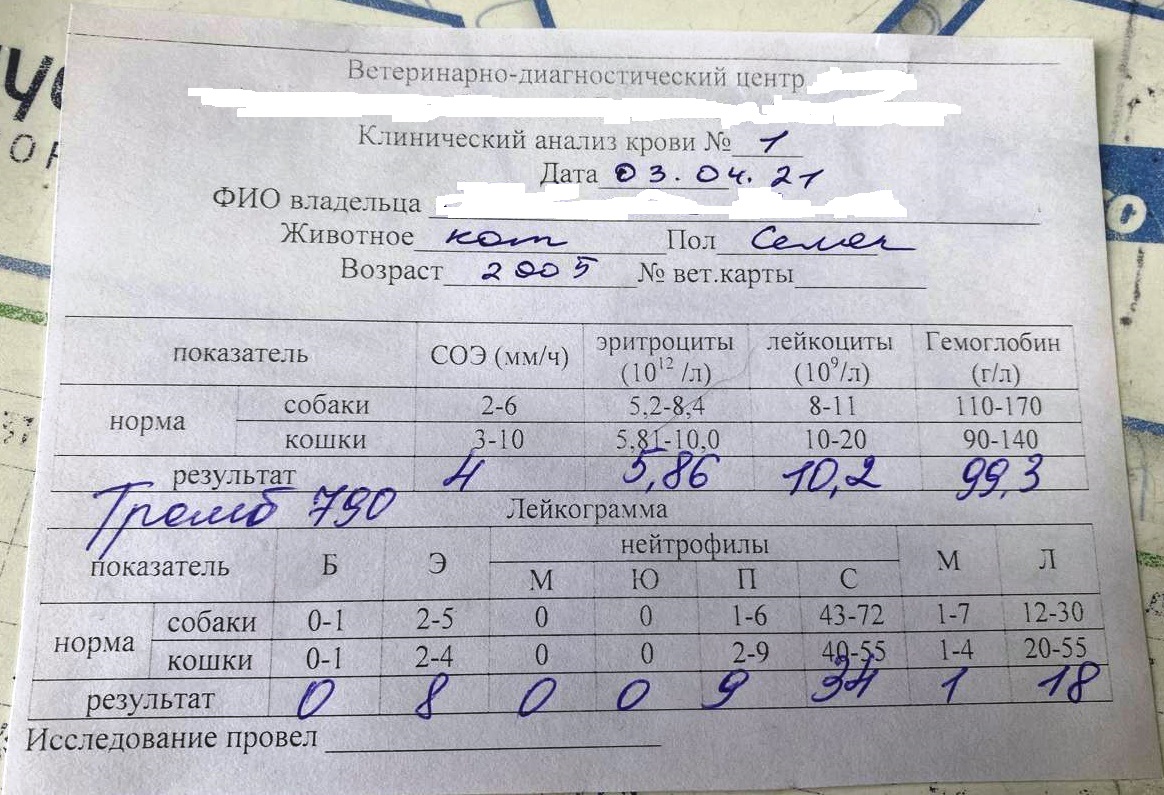 Ветеринарно-диагностический центр
Клинический анализ крови № 1
Дата 03.04.21
ФИО владельца
Животное кот Пол Семен
Возраст 2005 № вет.карты
показатель СОЭ (мм/ч) эритроциты (10¹² /л) лейкоциты (10⁹/л) Гемоглобин (г/л)
норма собаки 2-6 5,2-8,4 8-11 110-170
кошки 3-10 5,81-10,0 10-20 90-140
результат 4 5,86 10,2 99,3
Тромб 790 Лейкограмма
показатель Б Э нейтрофилы М Л
М Ю П С
норма собаки 0-1 2-5 0 0 1-6 43-72 1-7 12-30
кошки 0-1 2-4 0 0 2-9 40-55 1-4 20-55
результат 0 8 0 0 9 34 1 18
Исследование провел